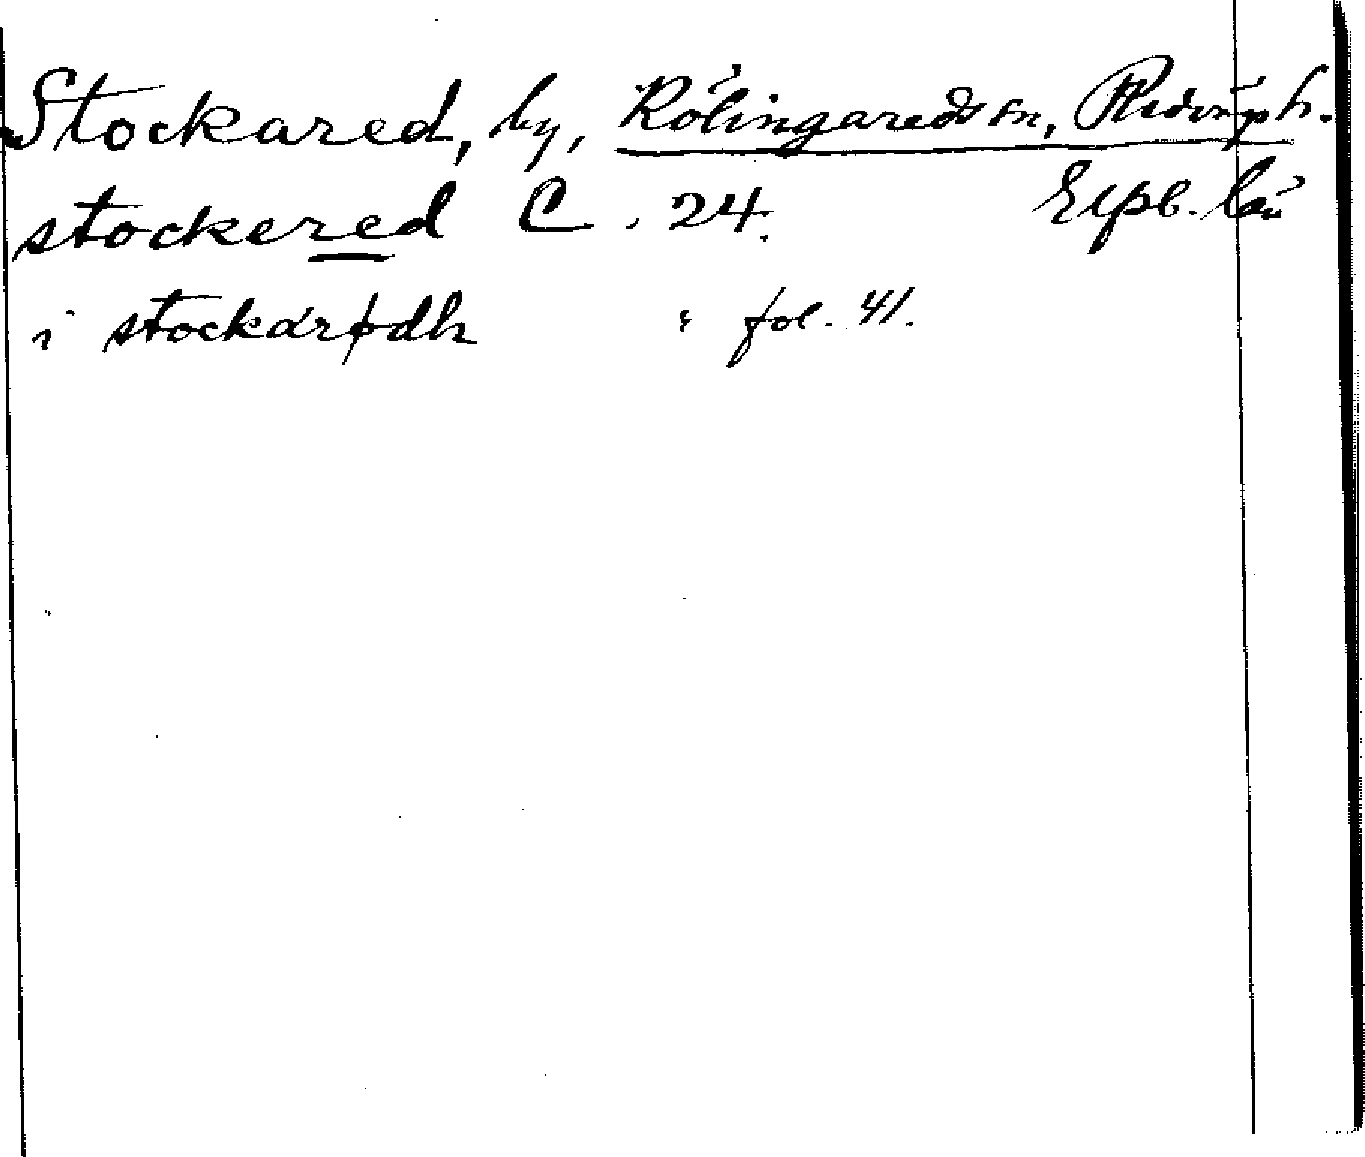 Stockared, by, Rölingareds sn, Redväps h.
stockered C. 24. Elfsb. län
i stockarødh " fol. 41.